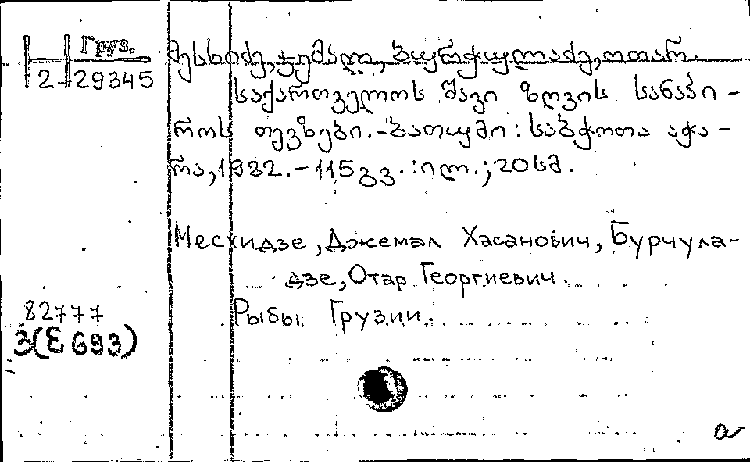 Груз.
2 29345
მესხიძე, ჯემალ, ბურჭულაძე, ოთარ.
საქართველოს შავი ზღვის სანაპი-
როს თევზები. - ბათუმი : საბჭოთა აჭა-
რა, 1982. - 115 გვ. : ილ. ; 20 სმ.
Месхидзе, Джемал Хасанович, Бурчула-
дзе, Отар Георгиевич.
82777
Рыбы Грузии.
З(Е693)
a